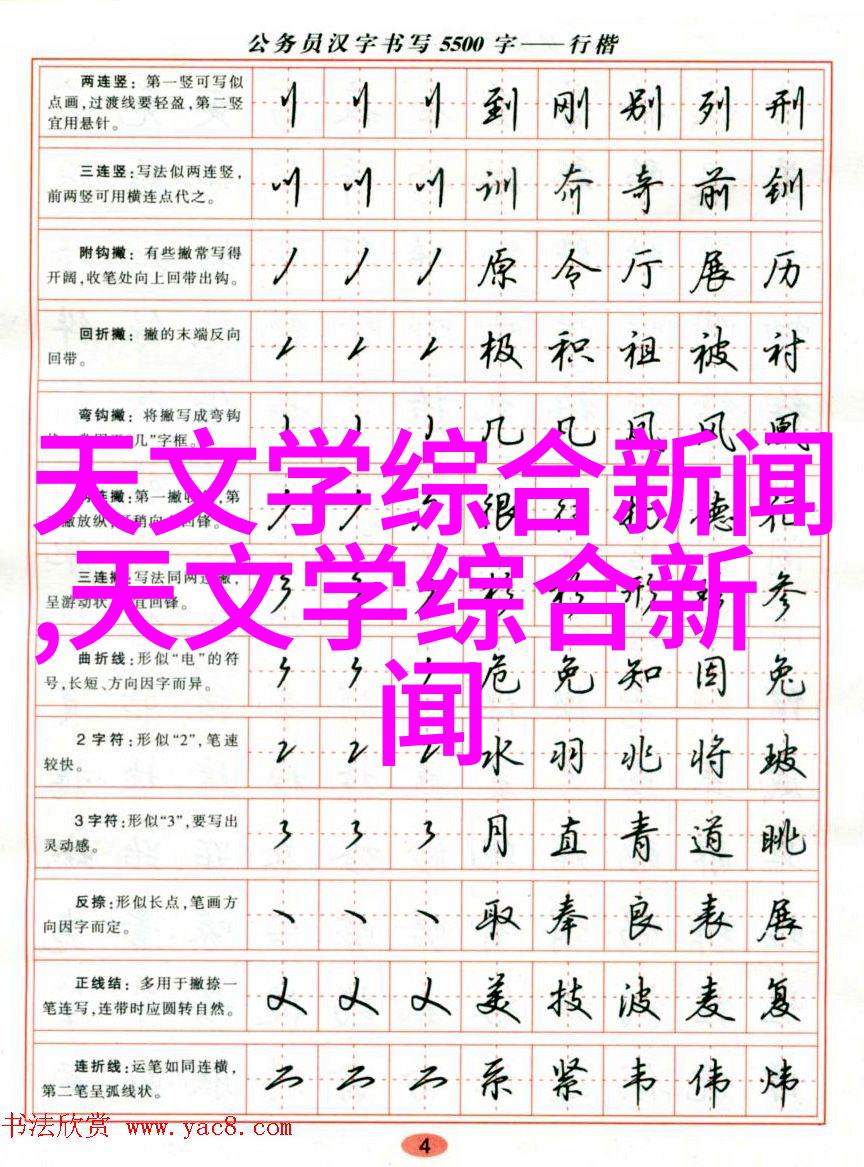 公务员汉字书写5500字——行楷
两连竖：第一竖可写似
点画，过渡线要轻盈，第二竖
宜用悬针。
到 刚 别 列 刑
三连竖：写法似两连竖，
前两竖可用横连点代之。
训 夼 奇 前 钏
附钩撇：有些撇常写得
开阔，收笔处向上回带出钩。
原 令 厅 展 历
回折撇：撇的末端反向
回带。
极 积 祖 被 衬
弯钩撇：将撇写成弯钩
几”字框。
几 凡 凤 风 凰
连撇：第一撇收，第
撇放纵，稍向回锋。
很 行 德
三连撇：写法同两连撇，
呈游动状，宜回锋。
形 参
曲折线：形似“电”的符
号，长短、方向因字而异。
危 免 知 因 兔
2字符：形似“2”，笔速
较快。
水 羽 兆 将 玻
3字符：形似“3”，要写出
灵动感。
月 直 青 道 眺
反捺：形似长点，笔画方
向因字而定。
取 奉 良 表 展
正线结：多用于撇捺一
笔连写，连带时应圆转自然。
美 技 波 麦 复
连折线：运笔如同连横，
第二笔呈弧线状。
系 紧 韦 伟 炜
天文学综合新闻
,天文学综合新
闻
书法欣赏 www.yac8.com
4